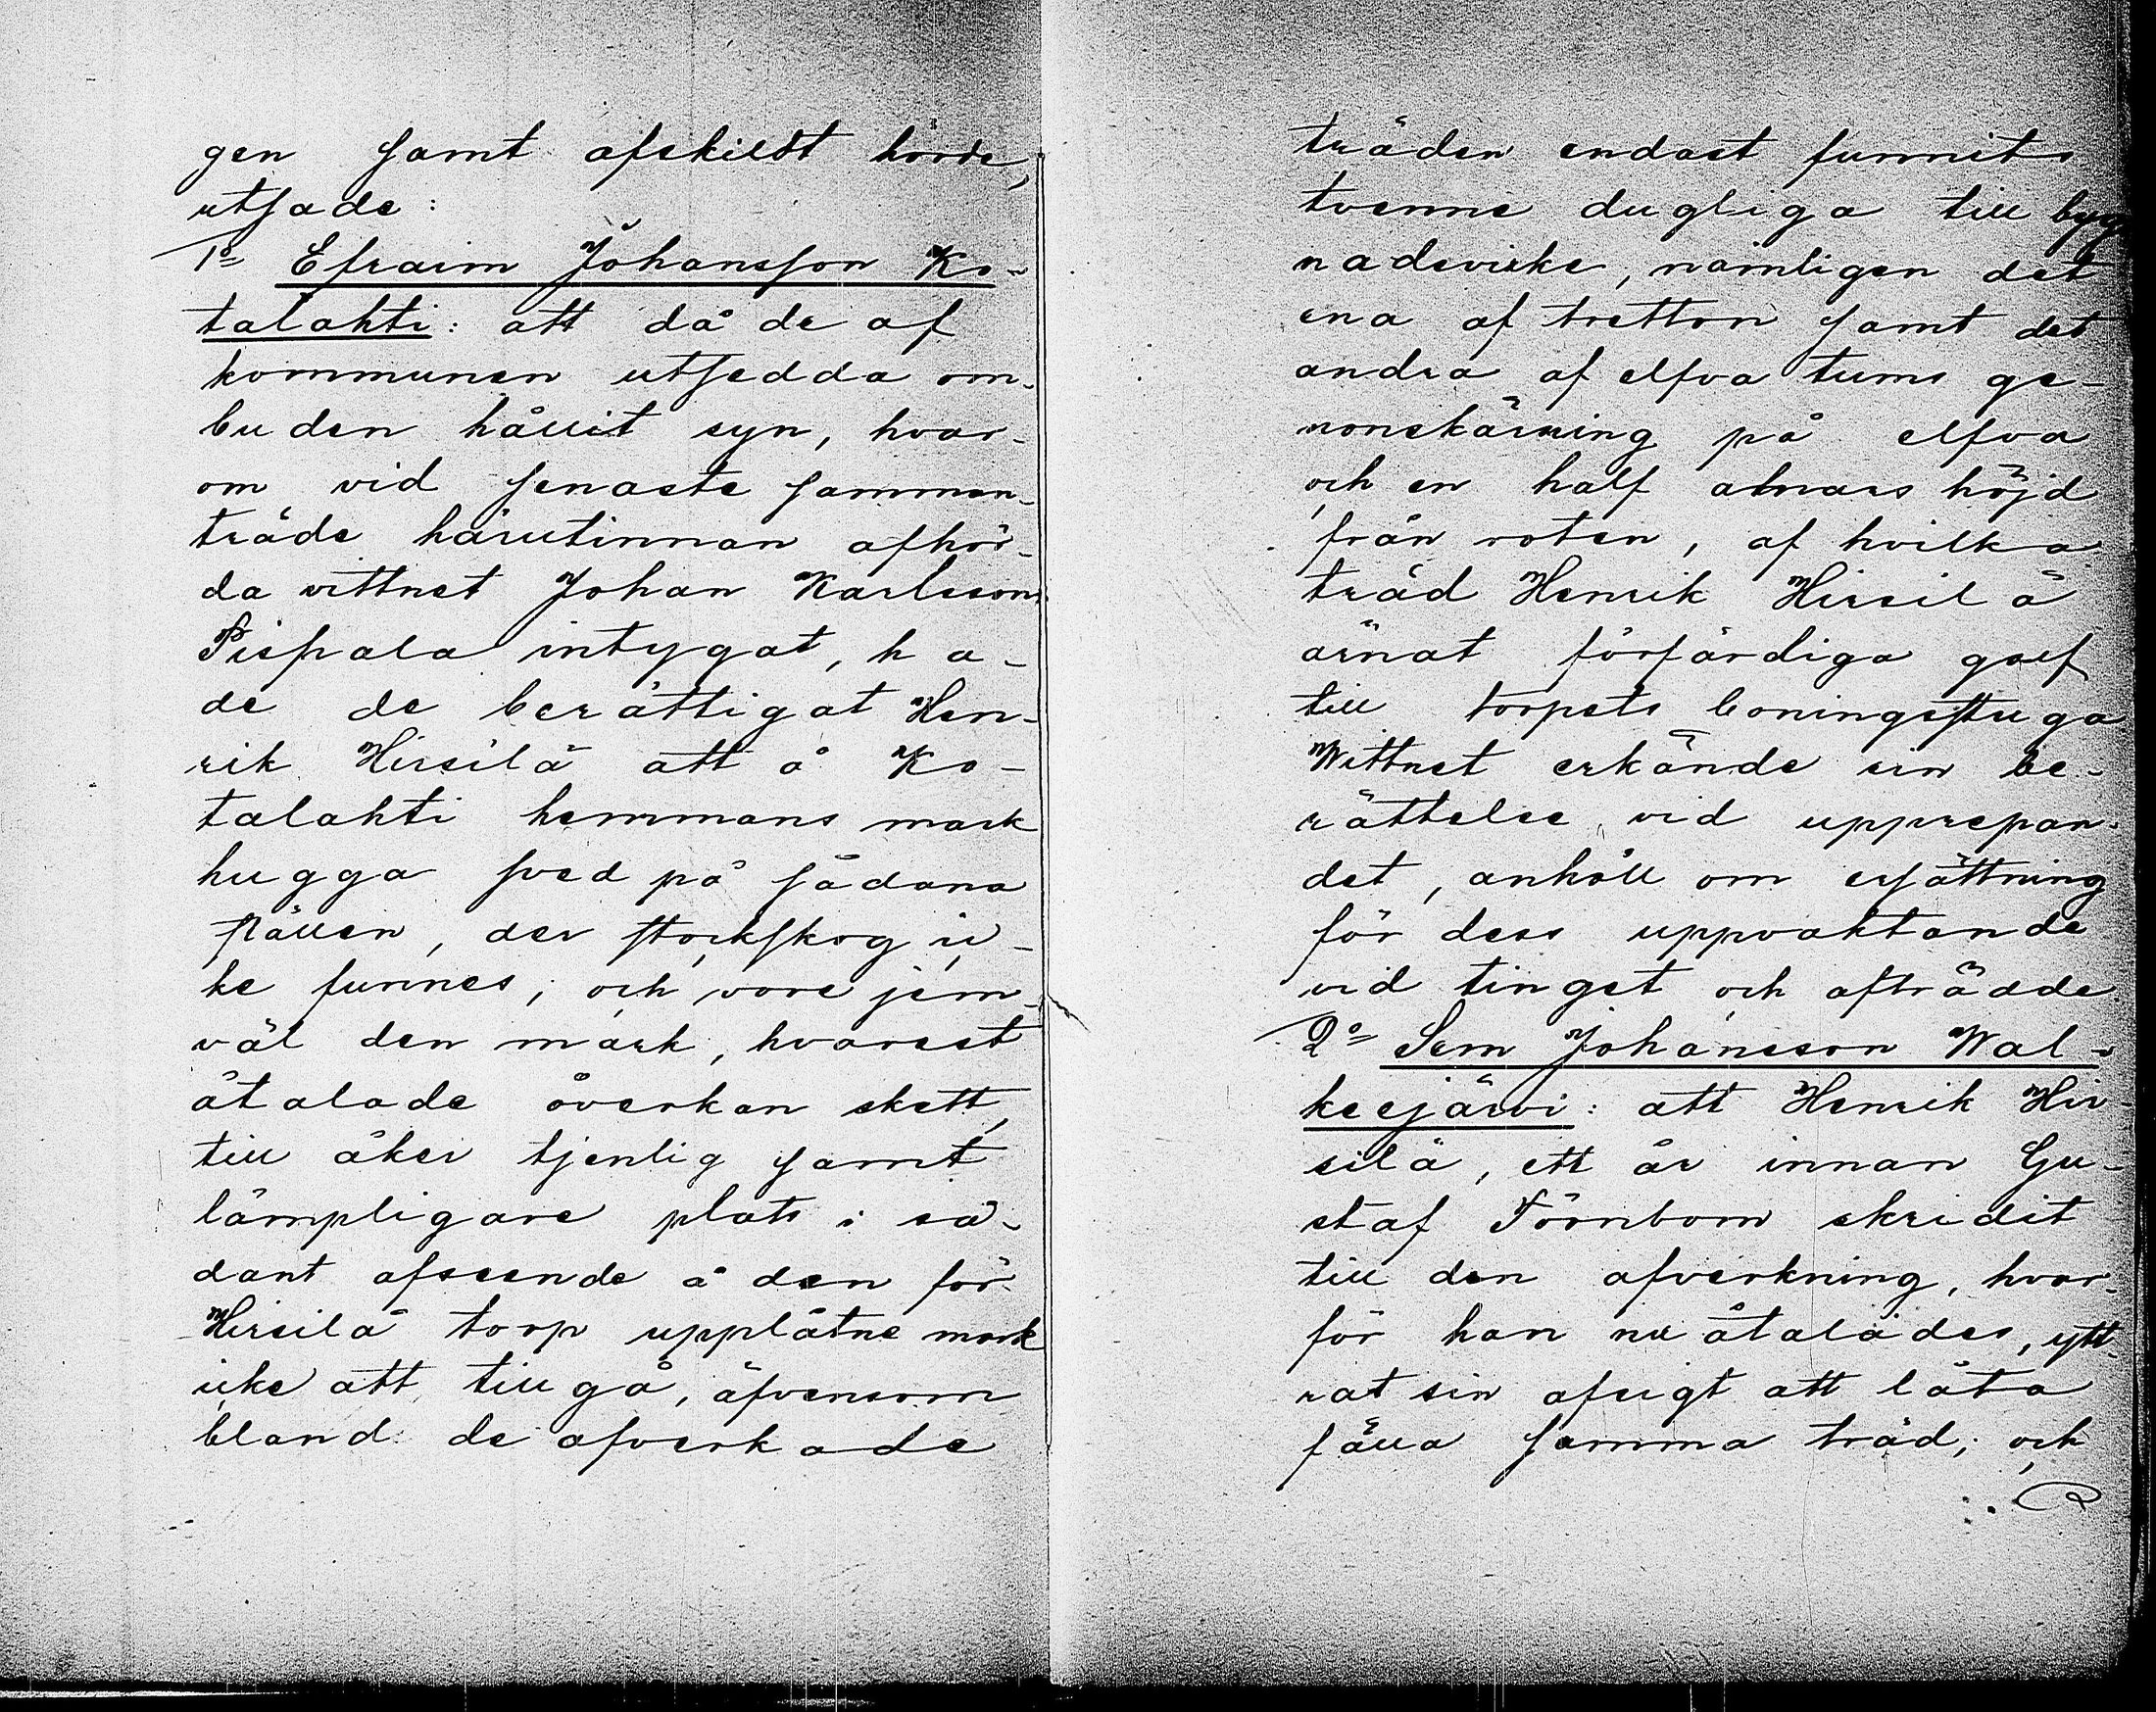 gen samt afskildt hörde,
utsade:
1o Efraim Johansson Ko-
talahti: att då de af
kommunen utsedda om-
buden hållit syn, hvar-
om vid senaste samman-
träde härutinnan afhör-
da vittnet Johan Karlsson
Pispala intygat, ha-
de de berättigat Hen-
rik Hirsilä att å Ko-
talahti hemmans mark
hugga sved på sådana
ställen, der stockskog ic-
ke funnes; och vore jem-
väl den mark, hvarest
åtalade åverkan skett,
till åker tjenlig samt
lämpligare plats i så-
dant afseende å den för
Hirsilä torp upplåtne mark
icke att tillgå, äfvensom
bland de afverkade
träden endast funnits
tvenne dugliga till byg
nadsvirke, nämligen det
ena af tretton samt det
andra af elfva tums ge-
nomskärning på elfva
och en half alnars höjd
från roten, af hvilka
träd Henrik Hirsilä
ärnat förfärdiga golf
till torpets boningsstuga
Wittnet erkände sin be-
rättelse vid upprepan-
det, anhöll om ersättning
för dess uppvaktande
vid tinget och afträdde.
2o Sem Johansson Wal-
keejärvi: att Henrik Hir-
silä, ett år innan Gu-
staf Törnbom skridit
till den afverkning, hvar-
för han nu åtalades, ytt-
rat sin afsigt att låta
fälla samma träd; och